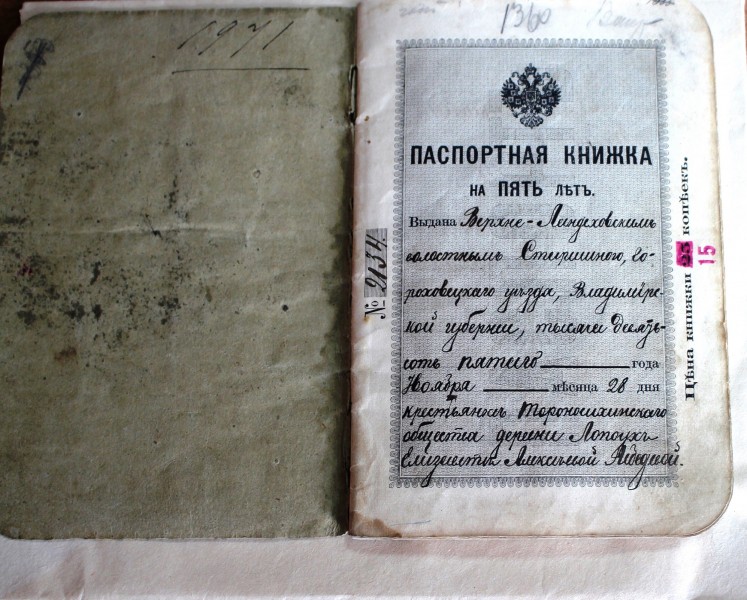 1971
1360
ПАСПОРТНАЯ КНИЖКА
НА ПЯТЬ ЛѢТЪ.
Выдана Верхне-Ландеховскимъ
волостнымъ Старшиною, Го-
роховецкаго уѣзда, Владимiрс-
кой губернiи, тысяча девять-
сотъ пятаго года
Ноября мѣсяца 28 дня
крестьянкѣ
общества деревни Лопоухъ
№ 2134
Цѣна книжки 25 копѣекъ.
15